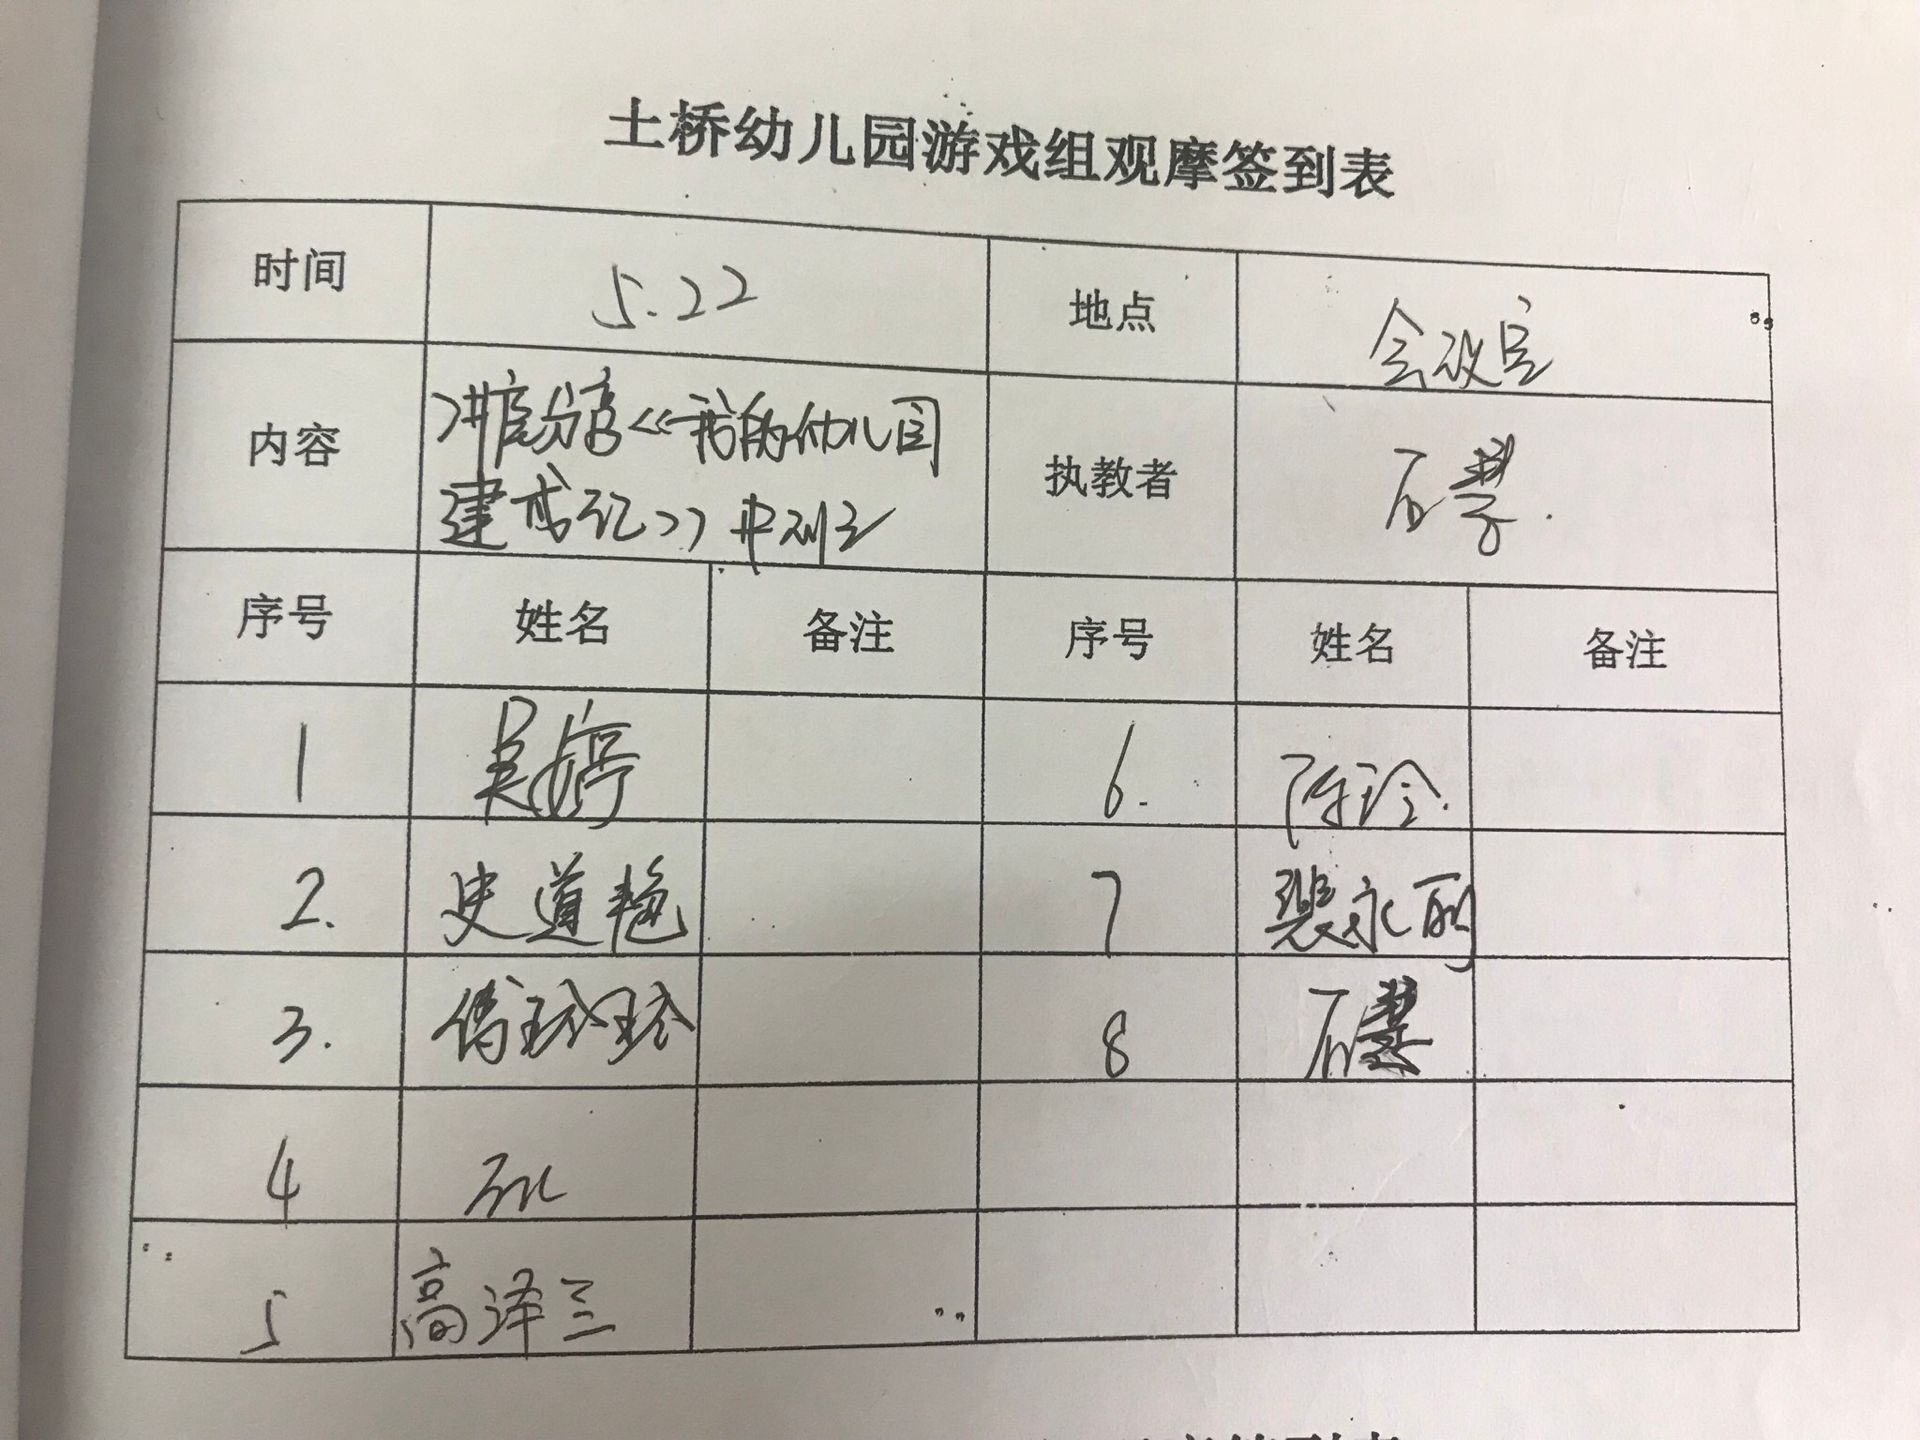 土桥幼儿园游戏组观摩签到表
时间 5.22 地点 会议室
内容 讲座分享《我的幼儿园 执教者 石
建成记》
序号 姓名 备注 序号 姓名 备注
1 吴婷 6. 陈玲.
2. 史道艳 7 裴永丽
3. 玲玲 8 石
4
5 高泽兰